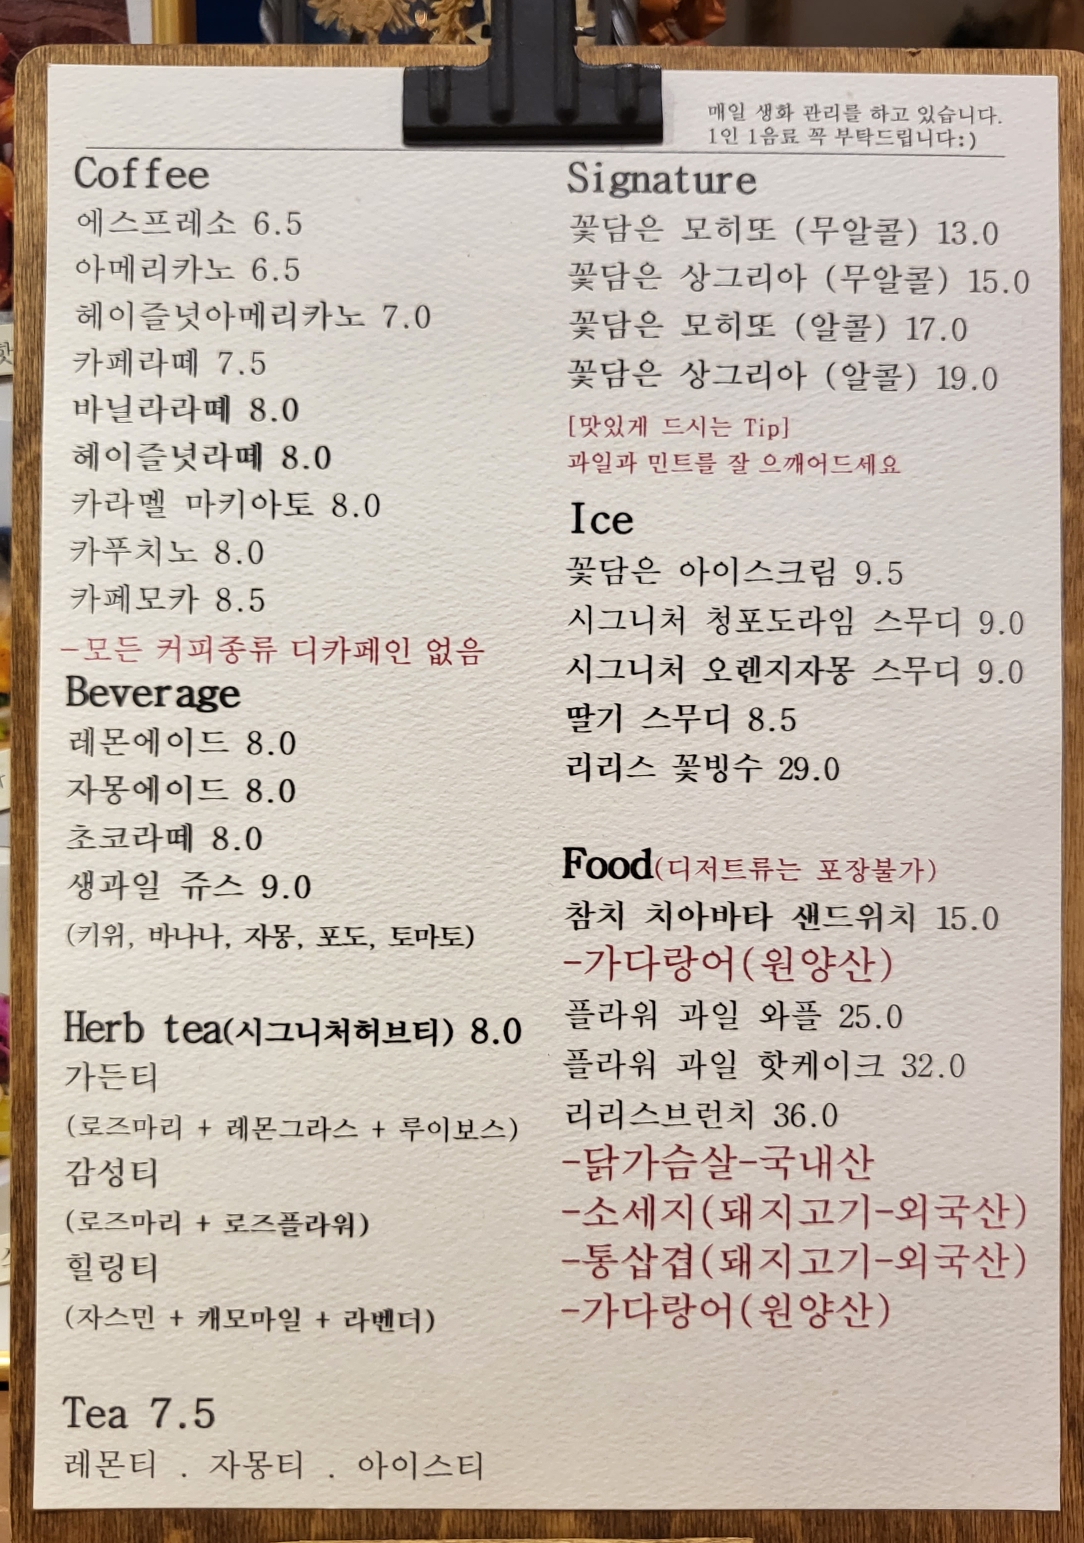 매일 생화 관리를 하고 있습니다.
1인 1음료 꼭 부탁드립니다:)
Coffee
에스프레소 6.5
아메리카노 6.5
헤이즐넛아메리카노 7.0
카페라떼 7.5
바닐라라떼 8.0
헤이즐넛라떼 8.0
카라멜 마키아토 8.0
카푸치노 8.0
카페모카 8.5
-모든 커피종류 디카페인 없음
Beverage
레몬에이드 8.0
자몽에이드 8.0
초코라떼 8.0
생과일 쥬스 9.0
(키위, 바나나, 자몽, 포도, 토마토)
Herb tea(시그니처허브티) 8.0
가든티
(로즈마리 + 레몬그라스 + 루이보스)
감성티
(로즈마리 + 로즈플라워)
힐링티
(자스민 + 캐모마일 + 라벤더)
Tea 7.5
레몬티 . 자몽티 . 아이스티
Signature
꽃담은 모히또 (무알콜) 13.0
꽃담은 상그리아 (무알콜) 15.0
꽃담은 모히또 (알콜) 17.0
꽃담은 상그리아 (알콜) 19.0
[맛있게 드시는 Tip]
과일과 민트를 잘 으깨어드세요
Ice
꽃담은 아이스크림 9.5
시그니처 청포도라임 스무디 9.0
시그니처 오렌지자몽 스무디 9.0
딸기 스무디 8.5
리리스 꽃빙수 29.0
Food(디저트류는 포장불가)
참치 치아바타 샌드위치 15.0
-가다랑어(원양산)
플라워 과일 와플 25.0
플라워 과일 핫케이크 32.0
리리스브런치 36.0
-닭가슴살-국내산
-소세지(돼지고기-외국산)
-통삽겹(돼지고기-외국산)
-가다랑어(원양산)